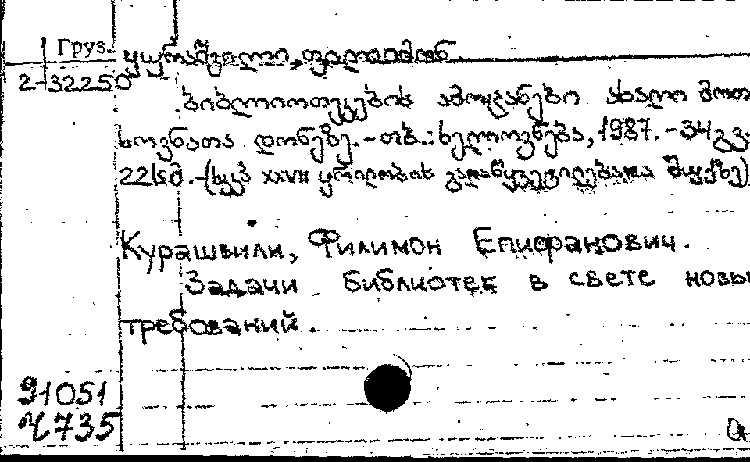 Груз. ყურაშვილი, ფილიმონ.
2-32250
ბიბლიოთეკების ამოცანები ახალი მოთ
ხოვნათა დონეზე. – თბ.: ხელოვნება, 1987. – 34 გვ
22 სმ. – (სკკპ XXVII ყრილობის გადაწყვეტილებათა შუქზე)
Курашвили, Филимон Епифанович.
Задачи библиотек в свете новы
требований.
91051
Ч735